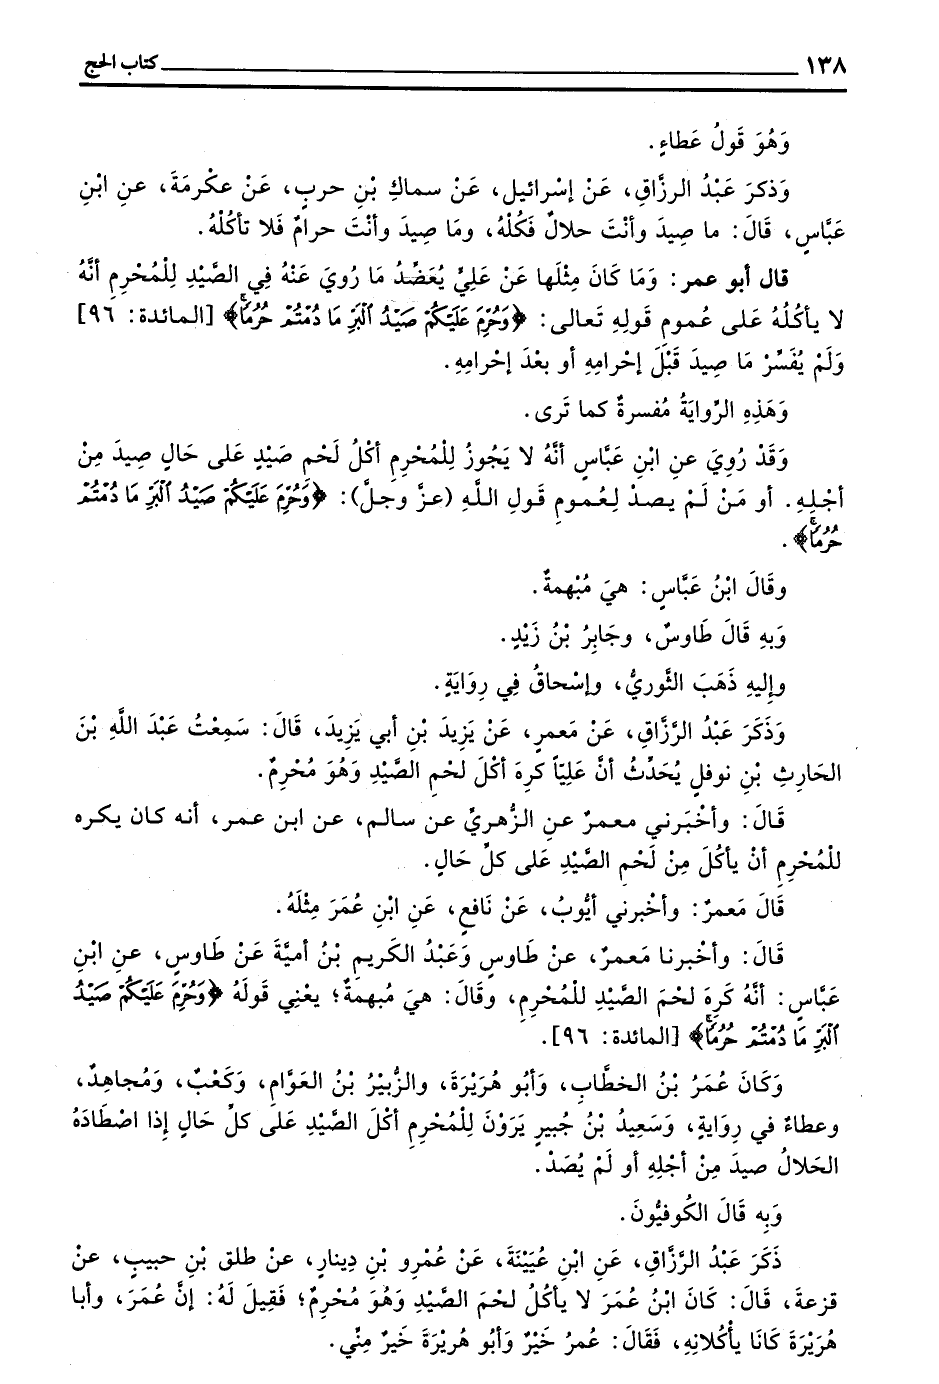 ١٣٨ كتاب الحج
وَهُوَ قَولُ عَطاءٍ.
وَذكرَ عَبْدُ الرزَّاقِ، عَنْ إسْرائيل، عَنْ سماكِ بْنِ حربٍ، عَنْ عكْرمَةَ، عنِ ابْنِ
عَبَّاسٍ، قَالَ: ما صِيدَ وأنْتَ حلالٌ فَكُلْهُ، ومَا صِيدَ وأنْتَ حرامٌ فَلا تأكُلْهُ.
قال أبو عمر: وَمَا كَانَ مِثْلَها عَنْ عَلِيٍّ يُعَضِّدُ مَا رُويَ عَنْهُ فِي الصَّيْدِ لِلْمُحْرِمِ أنَّهُ
لا يأكُلُهُ عَلى عُمومِ قَولِهِ تَعالى: ﴿وَحُرِّمَ عَلَيْكُمْ صَيْدُ ٱلْبَرِّ مَا دُمْتُمْ حُرُمًا﴾ [المائدة: ٩٦]
وَلَمْ يُفَسِّرْ مَا صِيدَ قَبْلَ إحْرامِهِ أو بعْدَ إحْرامِهِ.
وَهَذِهِ الرِّوايَةُ مُفسرةٌ كما تَرى.
وَقَدْ رُوِيَ عنِ ابْنِ عَبَّاسٍ أنَّهُ لا يَجُوزُ لِلْمُحْرِمِ أكْلُ لَحْمِ صَيْدٍ عَلى حَالٍ صِيدَ مِنْ
أجْلِهِ. أو مَنْ لَمْ يصدْ لِعُمومِ قَولِ اللَّهِ (عزَّ وجلَّ): ﴿وَحُرِّمَ عَلَيْكُمْ صَيْدُ ٱلْبَرِّ مَا دُمْتُمْ
حُرُمًا﴾.
وقَالَ ابْنُ عَبَّاسٍ: هيَ مُبْهمةٌ.
وَبهِ قَالَ طَاوسٌ، وجَابِرُ بْنُ زَيْدٍ.
وإليهِ ذَهَبَ الثَّوريُّ، وإسْحاقُ فِي رِوَايَةٍ.
وَذَكَرَ عَبْدُ الرَّزَّاقِ، عَنْ مَعمرٍ، عَنْ يَزِيدَ بْنِ أبي يَزِيدَ، قَالَ: سَمِعْتُ عَبْدَ اللَّهِ بْنَ
الحَارِثِ بْنِ نوفلٍ يُحَدِّثُ أنَّ عَلِيّاً كرِهَ أكْلَ لَحْمِ الصَّيْدِ وَهُوَ مُحْرِمٌ.
قَالَ: وأخْبَرني معمرٌ عنِ الزُّهريِّ عن سالم، عن ابن عمر، أنه كان يكره
للْمُحْرِمِ أنْ يأكُلَ مِنْ لَحْمِ الصَّيْدِ عَلى كلِّ حَالٍ.
قَالَ مَعمرٌ: وأخْبرني أيُّوبُ، عَنْ نَافعٍ، عَنِ ابْنِ عُمَرَ مِثْلَهُ.
قَالَ: وأخْبرنا مَعمرٌ، عنْ طَاوسٍ وَعَبْدُ الكَريمِ بْنُ أميَّةَ عَنْ طَاوسٍ، عنِ ابْنِ
عَبَّاسٍ: أنَّهُ كَرِهَ لَحْمَ الصَّيْدِ للْمُحْرِمِ، وقَالَ: هيَ مُبهمةٌ؛ يعْنِي قَولَهُ ﴿وَحُرِّمَ عَلَيْكُمْ صَيْدُ
ٱلْبَرِّ مَا دُمْتُمْ حُرُمًا﴾ [المائدة: ٩٦].
وَكَانَ عُمَرُ بْنُ الخطَّابِ، وَأبُو هُرَيْرَةَ، والزُّبيْرُ بْنُ العَوَّامِ، وَكَعْبٌ، وَمُجاهِدٌ،
وعطاءٌ في رِوايةٍ، وَسَعِيدُ بْنُ جُبيرٍ يَرَوْنَ لِلْمُحْرِمِ أكْلَ الصَّيْدِ عَلى كلِّ حَالٍ إذا اصْطَادَهُ
الحَلالُ صيدَ مِنْ أجْلِهِ أو لَمْ يُصَدْ.
وَبِهِ قَالَ الكُوفيُّونَ.
ذَكَرَ عَبْدُ الرَّزَّاقِ، عَنِ ابْنِ عُيَيْنَةَ، عَنْ عُمْرِو بْنِ دِينارٍ، عنْ طلق بْنِ حبيبٍ، عنْ
قزعةَ، قَالَ: كَانَ ابْنُ عُمَرَ لا يأكُلُ لحْمَ الصَّيْدِ وَهُوَ مُحْرِمٌ؛ فَقِيلَ لَهُ: إنَّ عُمَرَ، وأبا
هُرَيْرَةَ كَانَا يأْكُلانِهِ، فَقَالَ: عُمرُ خَيْرٌ وَأبُو هُريْرَةَ خَيرٌ مِنِّي.